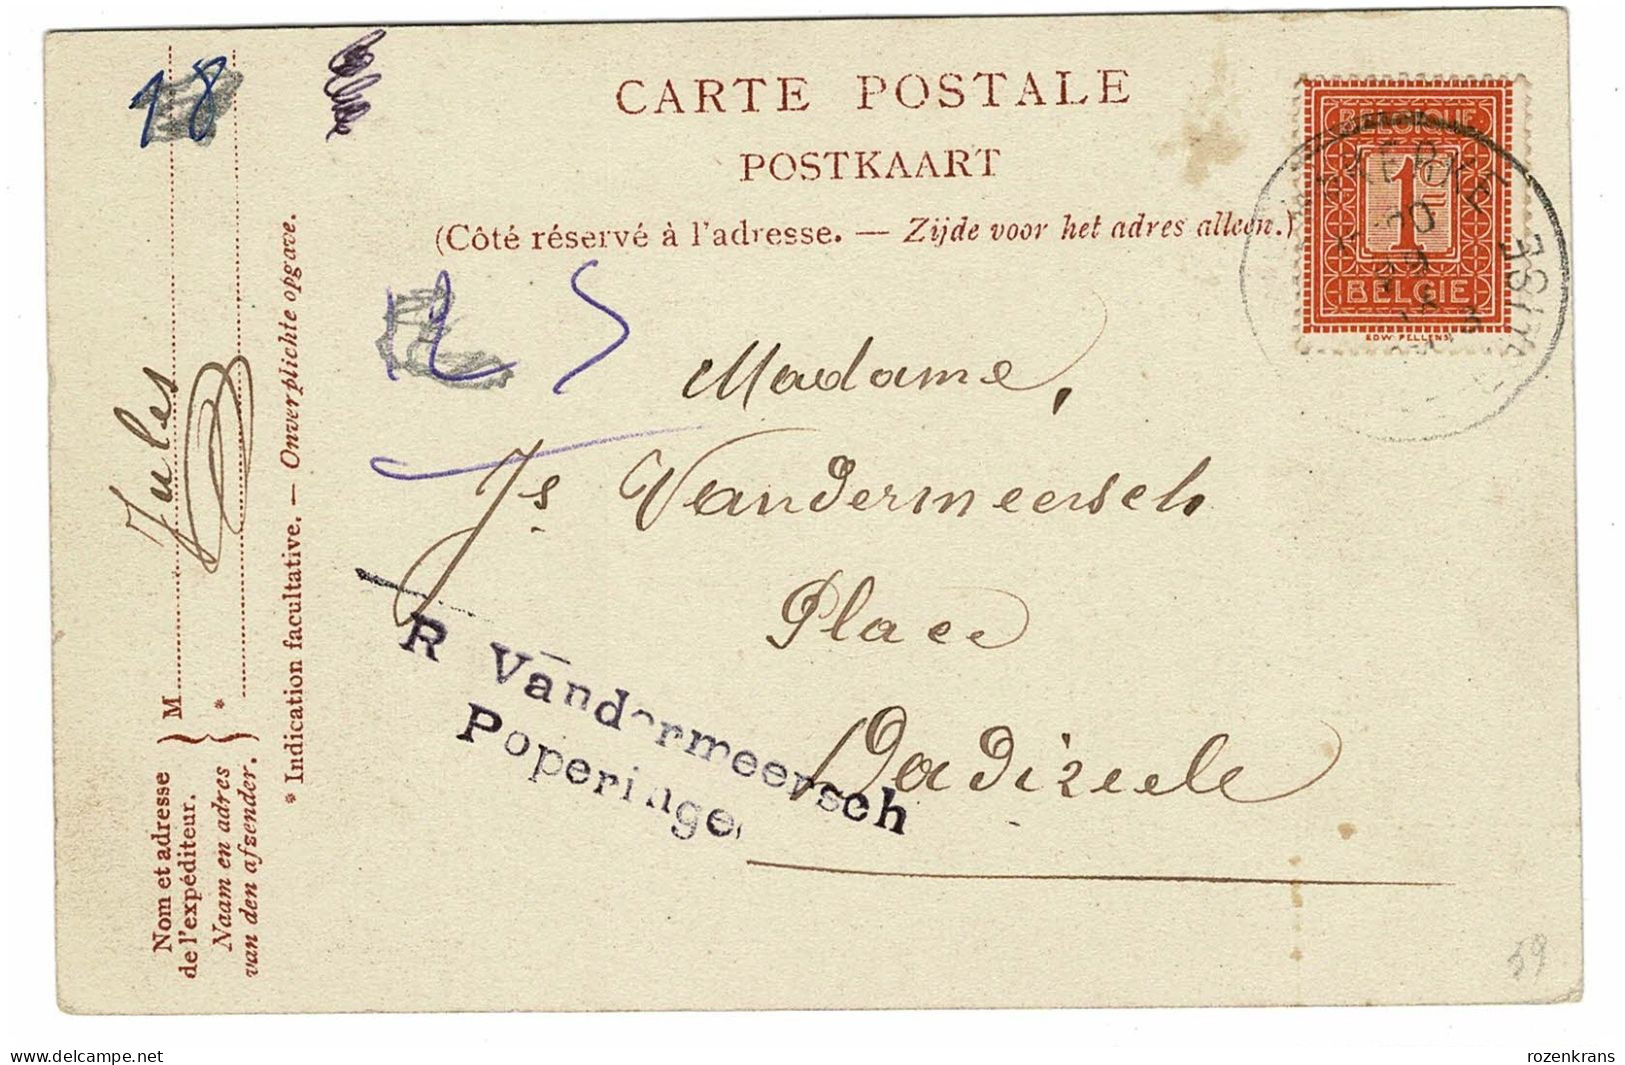 18
CARTE POSTALE
POSTKAART
(Côté réservé à l'adresse. — Zijde voor het adres alleen.)
BELGIQUE
1c
BELGIE
EDW PELLENS
Madame,
Js Vandermeersch
Place
Dadizeele
R Vandermeersch
Poperinge
Jules
M
*
Nom et adresse
de l'expéditeur.
Naam en adres
van den afzender.
* Indication facultative. — Onverplichte opgave.
59
delcampe.net
rozenkrans